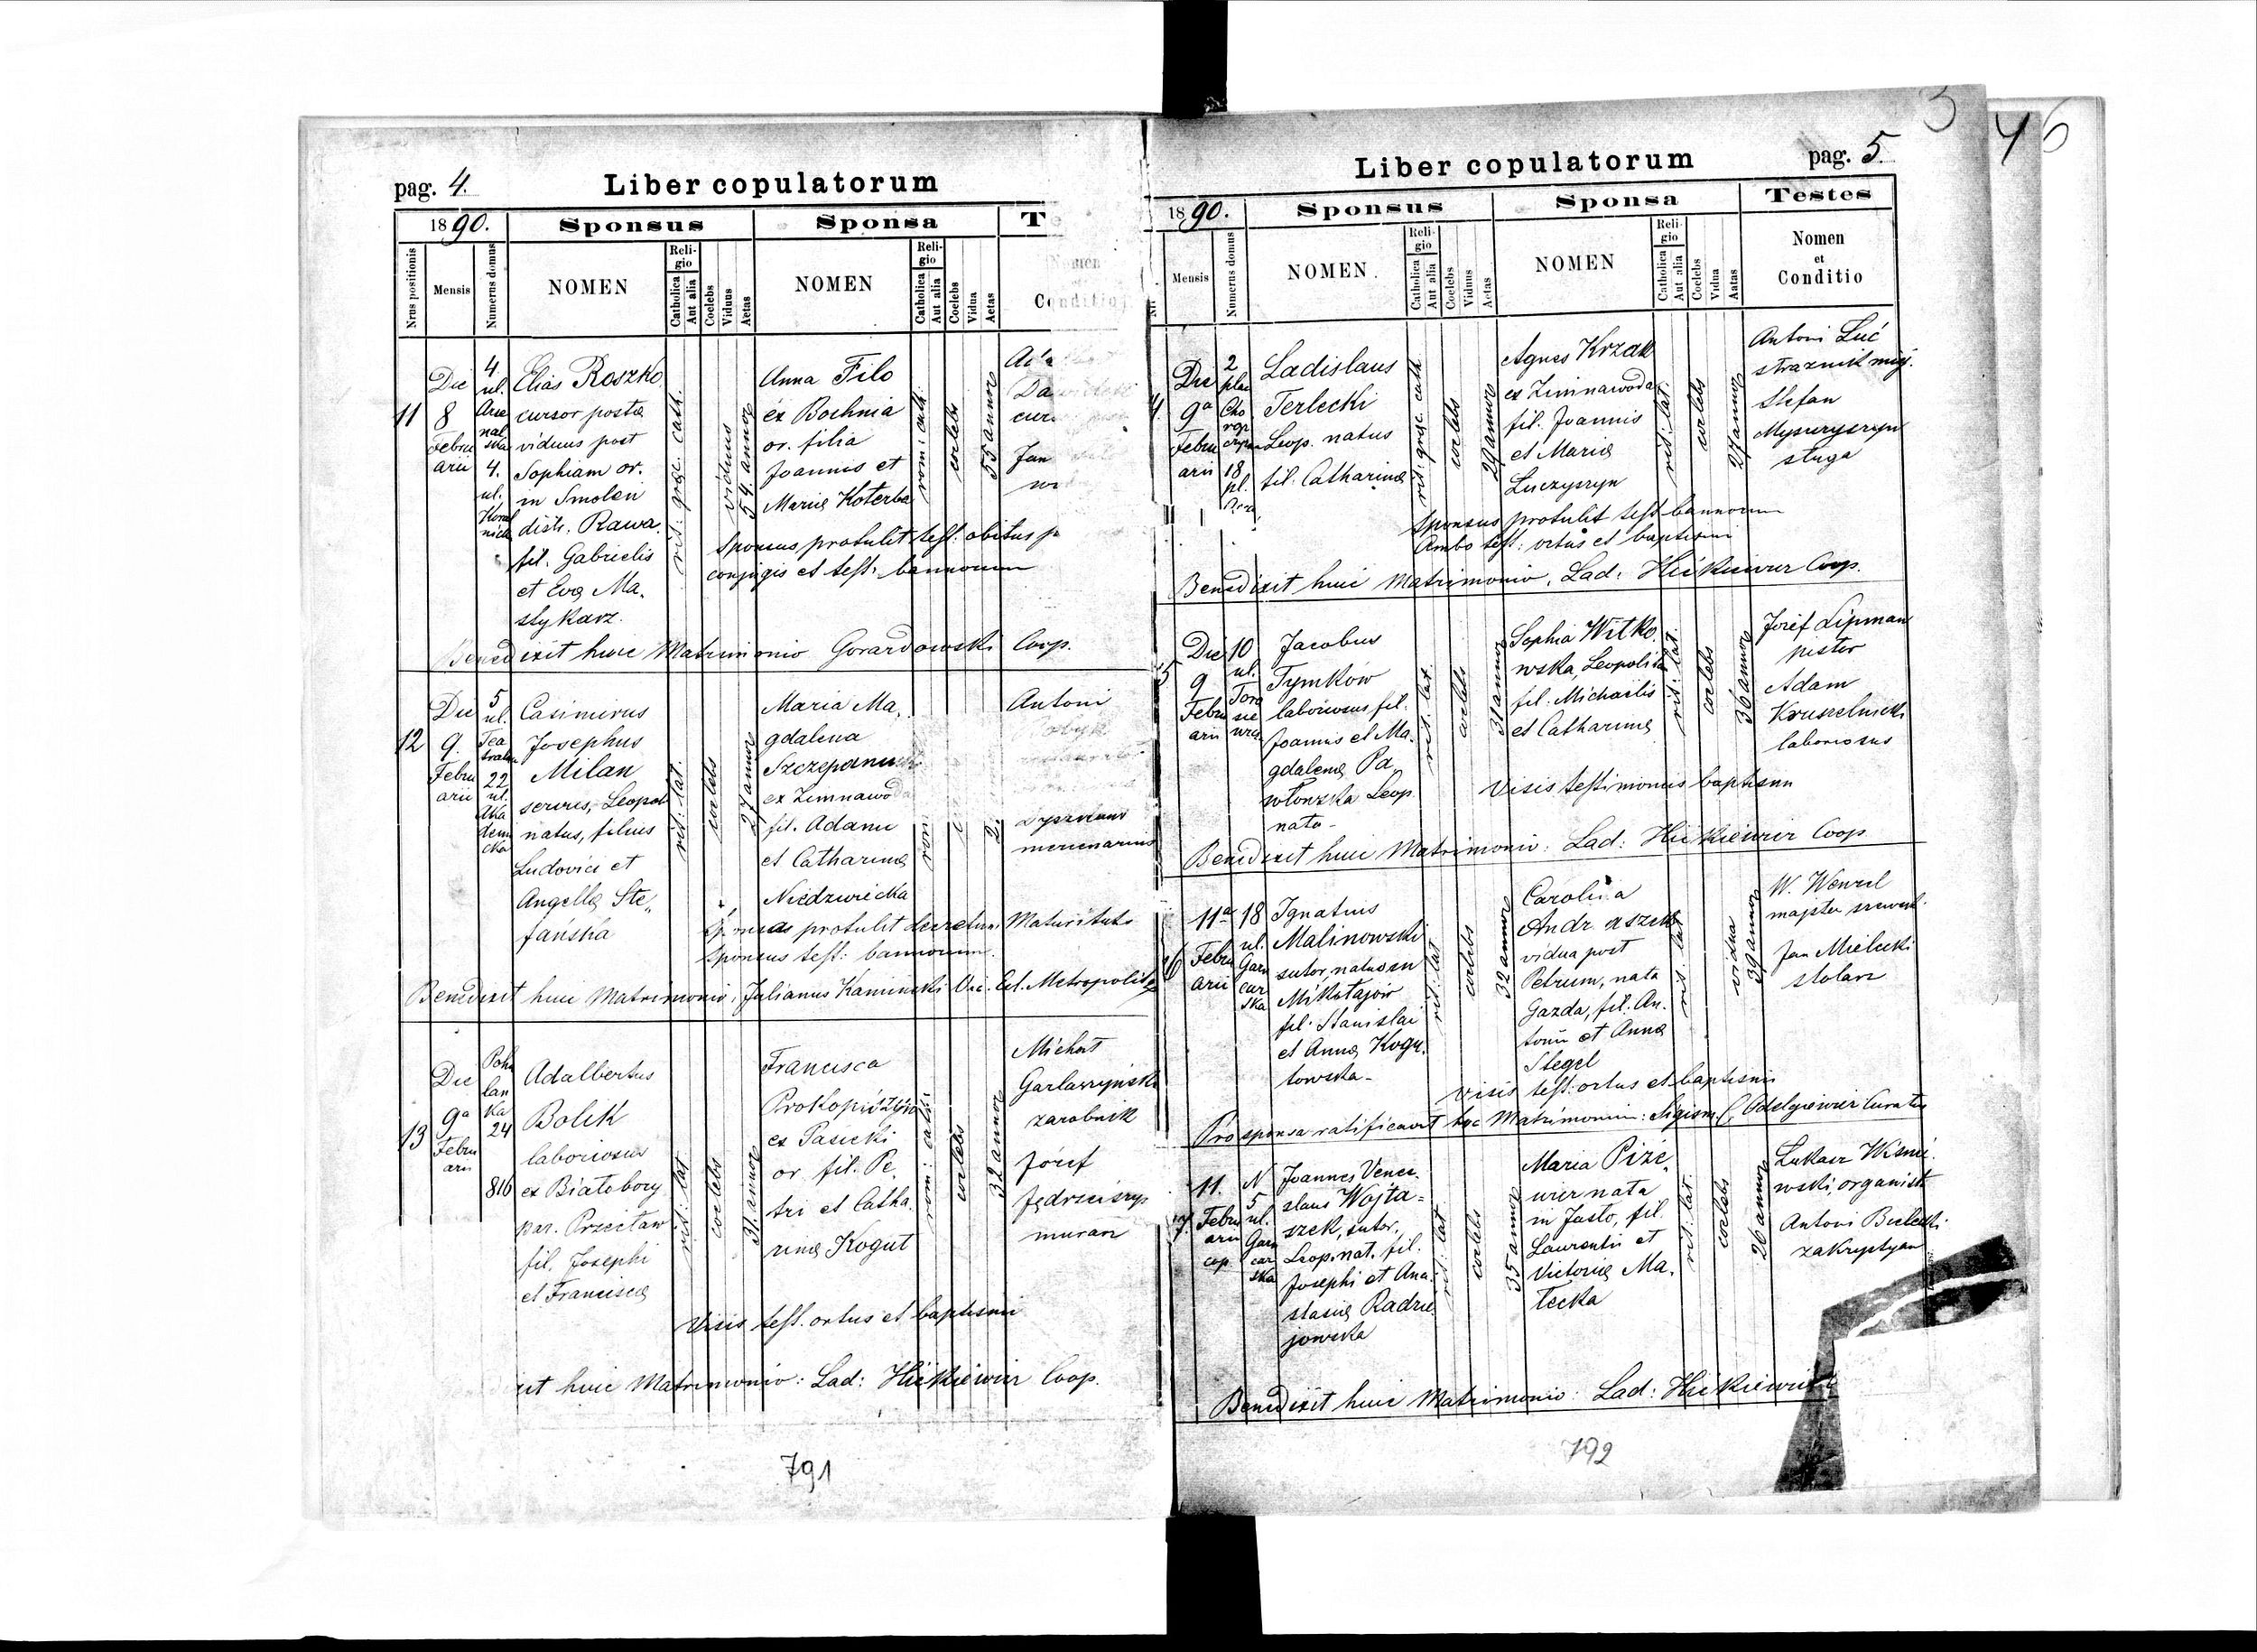 pag. 4.
Liber copulatorum
1890.
Sponsus
Sponsa
T
Nrus positionis
Mensis
Numerus domus
NOMEN
Religio
Catholica
Aut alia
Coelebs
Viduus
Aetas
NOMEN
Religio
Catholica
Aut alia
Coelebs
Vidua
Aetas
Nomen
Conditio
11
Die
8
Febru
arii
4
ul.
Arse
nal
ska
4.
ul.
Elias Roszko
cursor postæ
viduus post
Sophiam or.
in Smolin
distr. Rawa
fil. Gabrielis
et Evæ Ma-
stykarz.
rit: græc. cath.
viduus
54. annor
Anna Filo
ex Bochnia
or. filia
Joannis et
Mariæ Koterba
rom: cath.
coelebs
55 annor
Jan
Sponsus protulit test: obitus
conjugis et test: bannorum
Benedixit huic Matrimonio Gorardowski Coop.
12
Die
9.
Febru
arii
5
ul.
Tea
tralna
22
ul.
Aka
demi
cka
Casimirus
Josephus
Milan
servus, Leopoli
natus, filius
Ludovici et
Angellæ Ste„
fańska
rit: lat.
coelebs
27 annor
Maria Ma„
gdalena
ex Zimnawod
fil. Adami
et Catharinæ
Niedzwiecka
rom
Antoni
mercenarius
protulit decretum Maturitatis
Sponsus test: bannorum.
Benedixit huic Matrimonio: Julianus Kaminski
13
Die
9a
Febru
arii
Pohu
lan
ka
24
816
Adalbertus
Bolik
laboriosus
ex Białobory
par. Przecław
fil. Josephi
et Franciscæ
rit: lat
coelebs
31. annor
Francisca
ex Pasieki
or. fil. Pe„
tri et Catha„
rinæ Kogut
coelebs
32 annor
Michał
zarobnik
Józef
murarz
Visis test. ortus et baptismi
huic Matrimonio: Lad: Hickiewicz Coop.
791
pag. 5.
Liber copulatorum
1890.
Sponsus
Sponsa
Testes
Mensis
Numerus domus
NOMEN
Religio
Catholica
Aut alia
Coelebs
Viduus
Aetas
NOMEN
Religio
Catholica
Aut alia
Coelebs
Vidua
Aatas
Nomen
et
Conditio
4
Die
9a
Febru
arii
2
plac
18
pl.
Ladislaus
Terlecki
Leop. natus
fil. Catharinæ
rit: græc cath
coelebs
29 annor
Agnes Krzak
ex Zimnawoda
fil. Joannis
et Mariæ
Luczyszyn
rit: lat.
coelebs
27 annor
Antoni Łuć
strażnik miej.
Stefan
sługa
Sponsus protulit test bannorum
Ambo test: ortus et baptismi
Benedixit huic Matrimonio, Lad: Hickiewicz Coop.
5
Die
9
Febru
arii
10
ul.
Jacobus
Tymków
laboriosus fil.
Joannis et Ma„
gdalenæ Pa„
włowska Leop.
nato-
rit: lat.
coelebs
31 annor
Sophia Witko„
wska, Leopoli
fil. Michaelis
et Catharinæ
rit: lat.
coelebs
36 annor
Józef Lipman
pistor
Adam
Kruszelnicki
laboriosus
Visis testimoniis baptismi
Benedixit huic Matrimonio: Lad: Hickiewicz Coop
6
11a
Febru
arii
18
ul.
Garn
car
ska
Ignatius
Malinowski
sutor, natus in
Mikołajów
fil. Stanislai
et Annæ Kogu„
towska-
rit: lat
coelebs
32 annor
Carolina
vidua post
Petrum, nata
Gazda, fil. An„
tonii et Annæ
Stegel
rit. lat
vidua
39 annor
W. Wenzel
majster szewsk.
Jan Mielecki
stolarz
Visis test: ortus et baptismi
Pro sponsa ratificavit hoc Matrimonium: Sigism.
7
11.
Febru
arii
N
5
ul.
Garn
car
ska
Joannes Vences„
slaus Wojta=
szek, sutor,
Leop. nat. fil.
Josephi et Ana„
stasiæ Radzie„
jowska
rit: lat
coelebs
35 annor
nata
in Jasło, fil.
Laurentii et
Victoriæ Ma„
łecka
rit: lat.
coelebs
26 annor
Łukasz Wiśnie„
wski, organista
Antoni Bielecki
zakrystyan
Benedixit huic Matrimonio: Lad: Hickiewicz
792